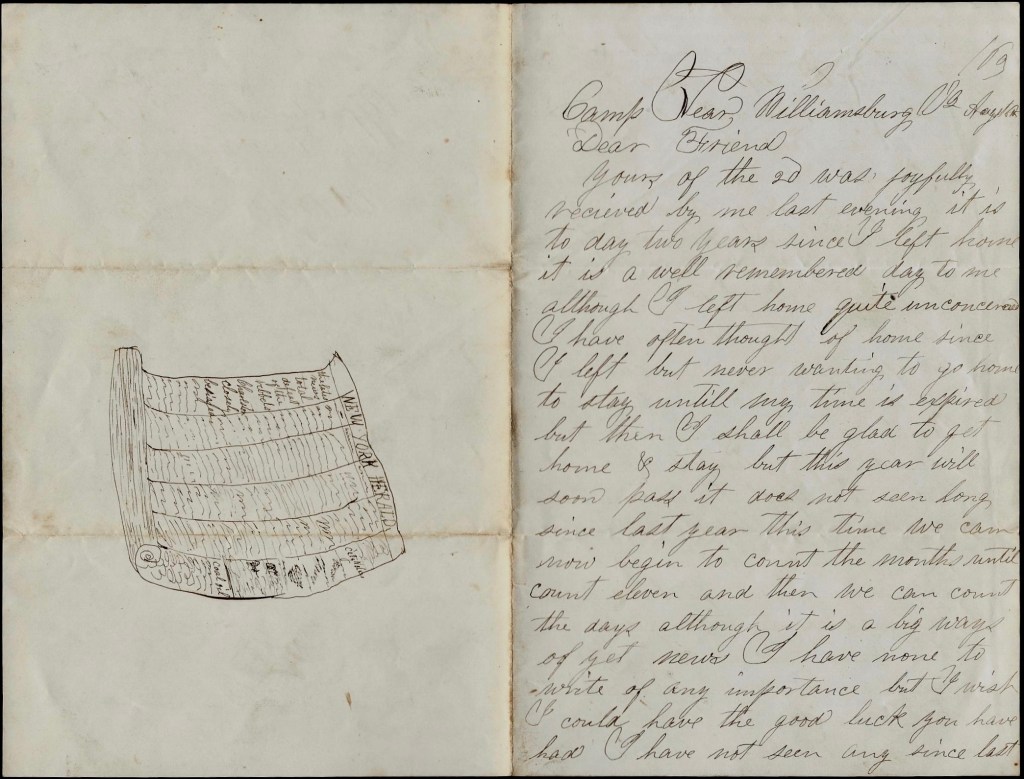 NEW YORK HERALD
169
Camp Near Williamsburg Va Aug
Dear Friend
Yours of the 2d was joyfully
recieved by me last evening it is
to day two years since I left home
it is a well remembered day to me
although I left home quite unconcerned
I have often thought of home since
I left but never wanting to go home
to stay untill my time is expired
but then I shall be glad to get
home & stay but this year will
soon pass it does not seen long
since last year this time we can
now begin to count the months until
count eleven and then we can count
the days although it is a big ways
of yet news I have none to
write of any importance but I wish
I could have the good luck you have
had I have not seen any since last